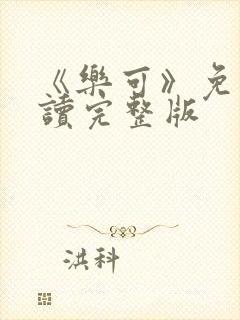 《樂可》免
讀完整版
洪科